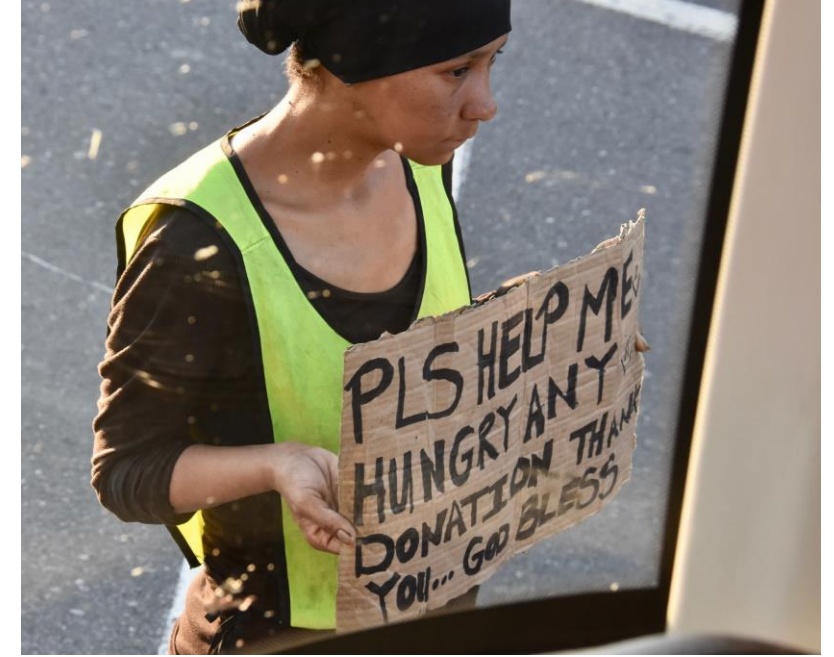 PLS HELP ME
HUNGRY ANY
DONATION THANK
YOU... GOD BLESS